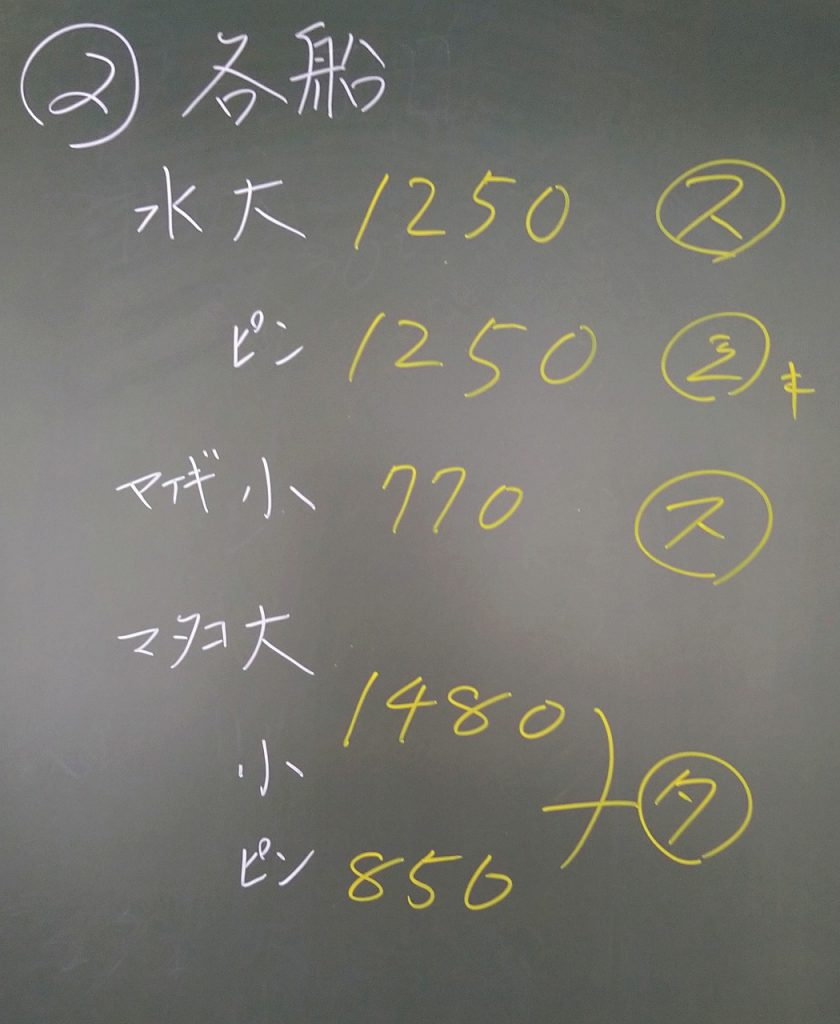 ② 各船
水大 1250 ㋜
ピン 1250 キ
マイギ小 770 ㋜
マダコ大
1480
小 ㋟
ピン 850